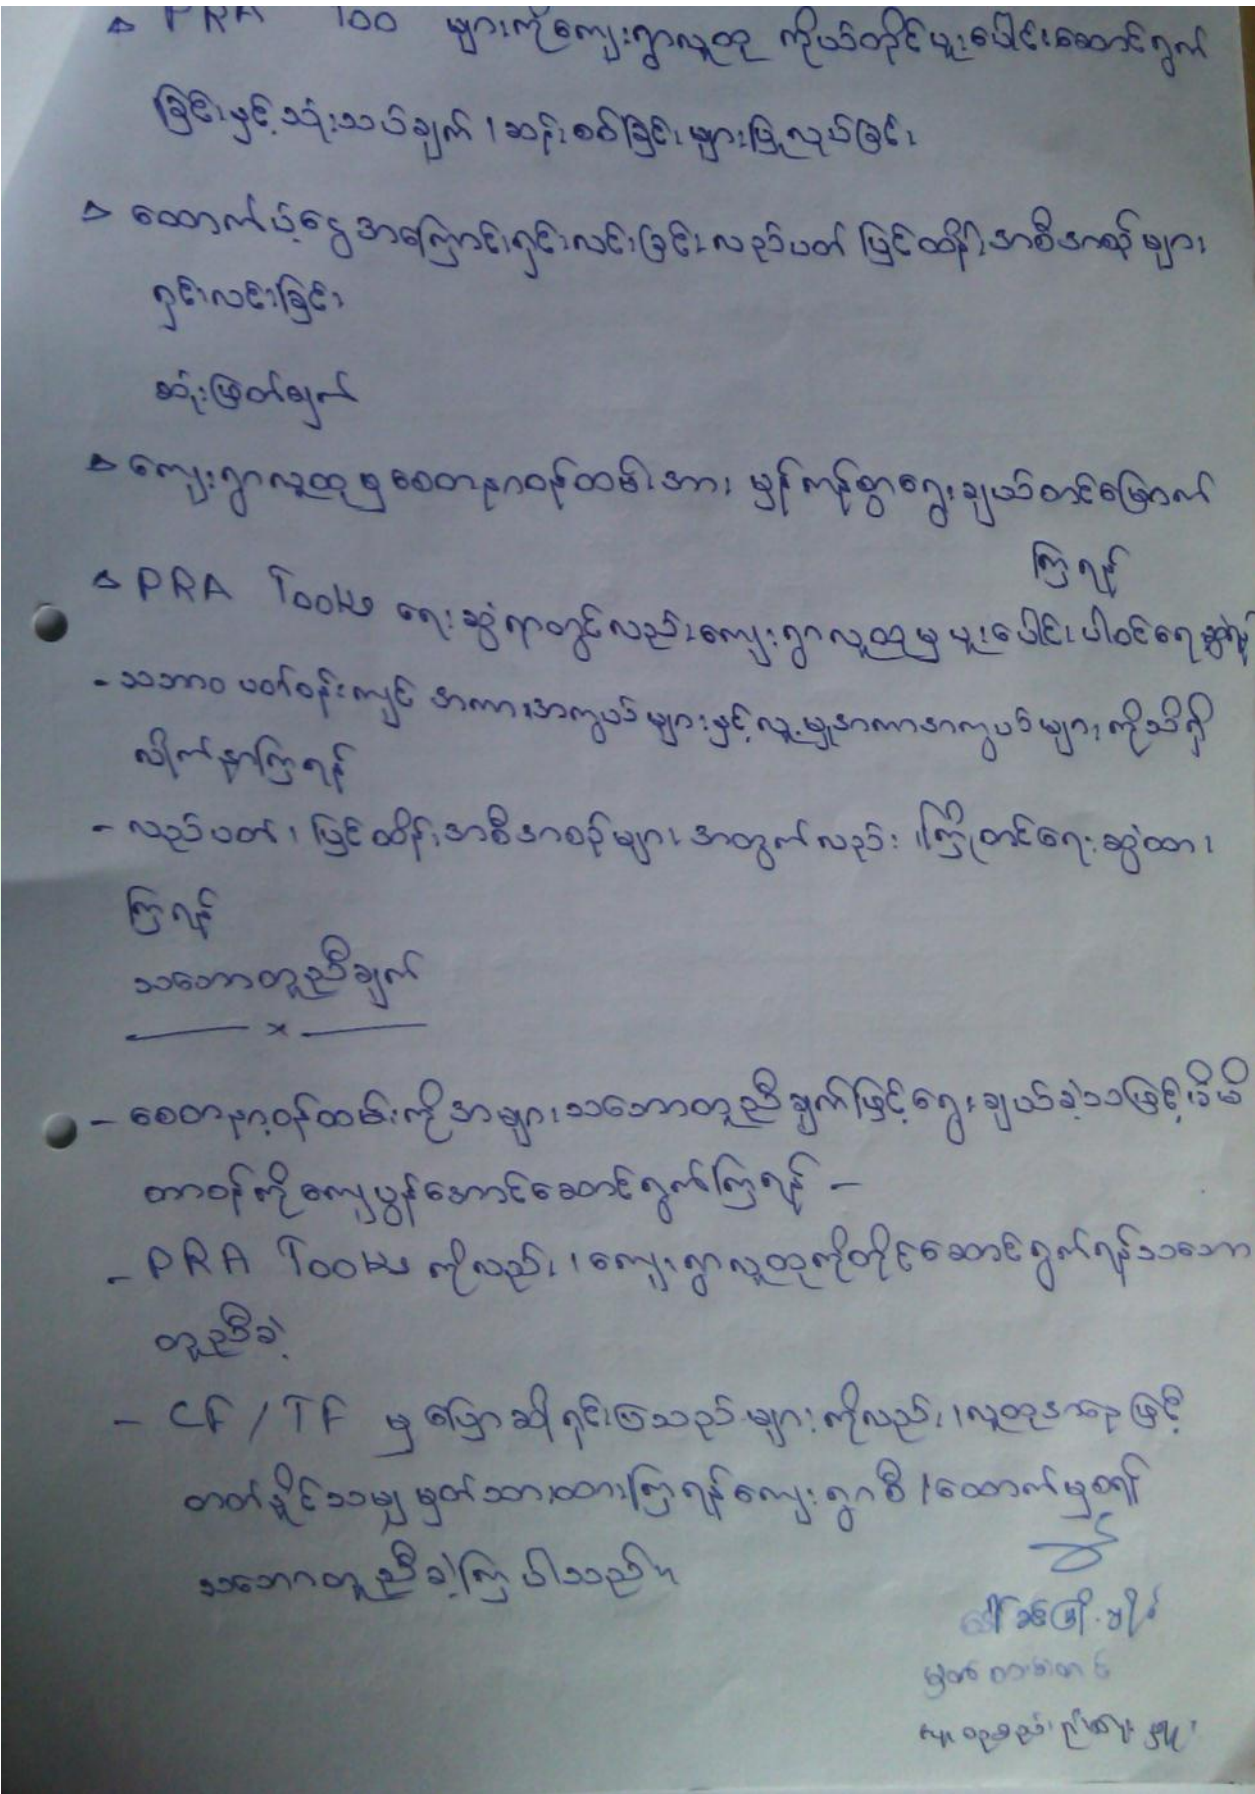 ▵ PRA Too များကို ကျေးရွာလူထု ကိုယ်တိုင်ပူးပေါင်းဆောင်ရွက်
ခြင်းနှင့် သုံးသပ်ချက် ၊ ဆန်းစစ်ခြင်းများပြုလုပ်ခြင်း
▵ ထောက်ပံ့ငွေအကြောင်းရှင်းလင်းခြင်း လည်ပတ် ပြင်ထိန်းအစီအစဉ်များ
ရှင်းလင်းခြင်း
ဆုံးဖြတ်ချက်
▵ ကျေးရွာလူထုမှ စေတနာ့ဝန်ထမ်းအား မှန်ကန်စွာရွေးချယ်တင်မြှောက်
ကြရန်
▵ PRA Tools ရေးဆွဲရာတွင်လည်း ကျေးရွာလူထုမှ ပူးပေါင်းပါဝင်ရေးဆွဲရန်
- သဘာဝ ပတ်ဝန်းကျင် အကာအကွယ်များနှင့် လူမှုအကာအကွယ်များကိုသိရှိ
လိုက်နာကြရန်
- လည်ပတ် ၊ ပြင်ထိန်းအစီအစဉ်များ အတွက်လည်း ကြိုတင်ရေးဆွဲထား
ကြရန်
သဘောတူညီချက်
— x —
- စေတနာ့ဝန်ထမ်းကိုအများသဘောတူညီချက်ဖြင့်ရွေးချယ်ခဲ့သဖြင့် မိမိ
တာဝန်ကိုကျေပွန်အောင်ဆောင်ရွက်ကြရန် -
- PRA Tools ကိုလည်း ၊ ကျေးရွာလူထုကိုတိုင်ဆောင်ရွက်ရန်သဘော
တူညီခဲ့
- CF / TF မှ ပြောဆိုရှင်းပြသည်များကိုလည်း ၊ လူထုအနေဖြင့်
တတ်နိုင်သမျှ မှတ်သားထားကြရန် ကျေးရွာစီ ၊ ထောက်မှစ၍
သဘောတူညီခဲ့ကြပါသည်။